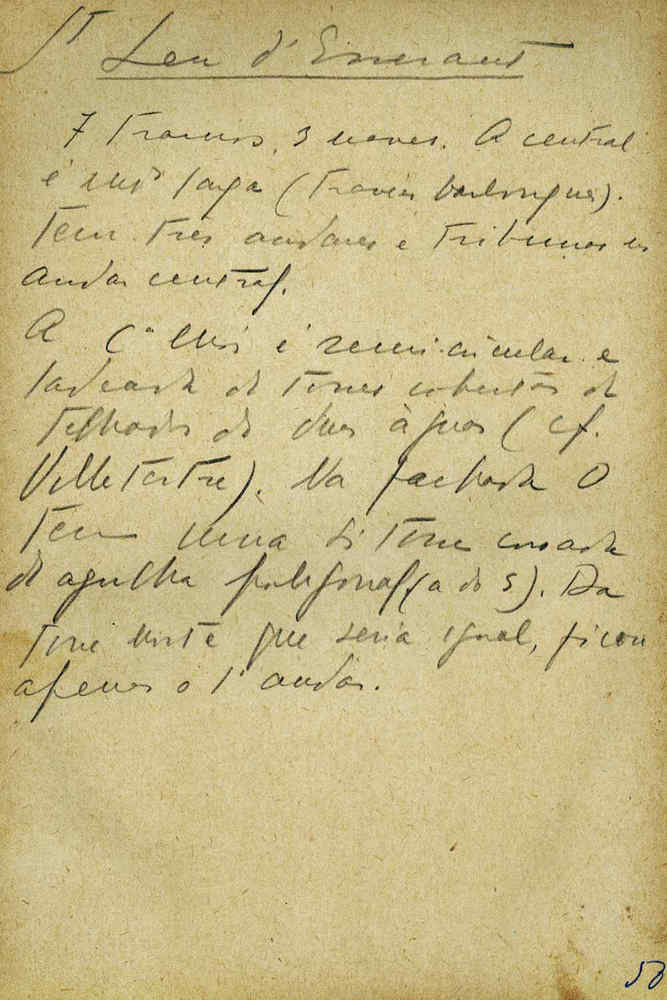 St Leu d'Esserant
7 tramos, 3 naves. A central
é mto larga (traves barlongues).
Tem três andares e tribunas no
andar central.
A é semi-circular e
ladeada de torres cobertas de
telhados de duas àguas (cf.
Villetertre). Na fachada O
tem uma só torre coroada
de agulha poligonal (a do S). Da
torre norte que seria igual, ficou
apenas o 1º andar.
53